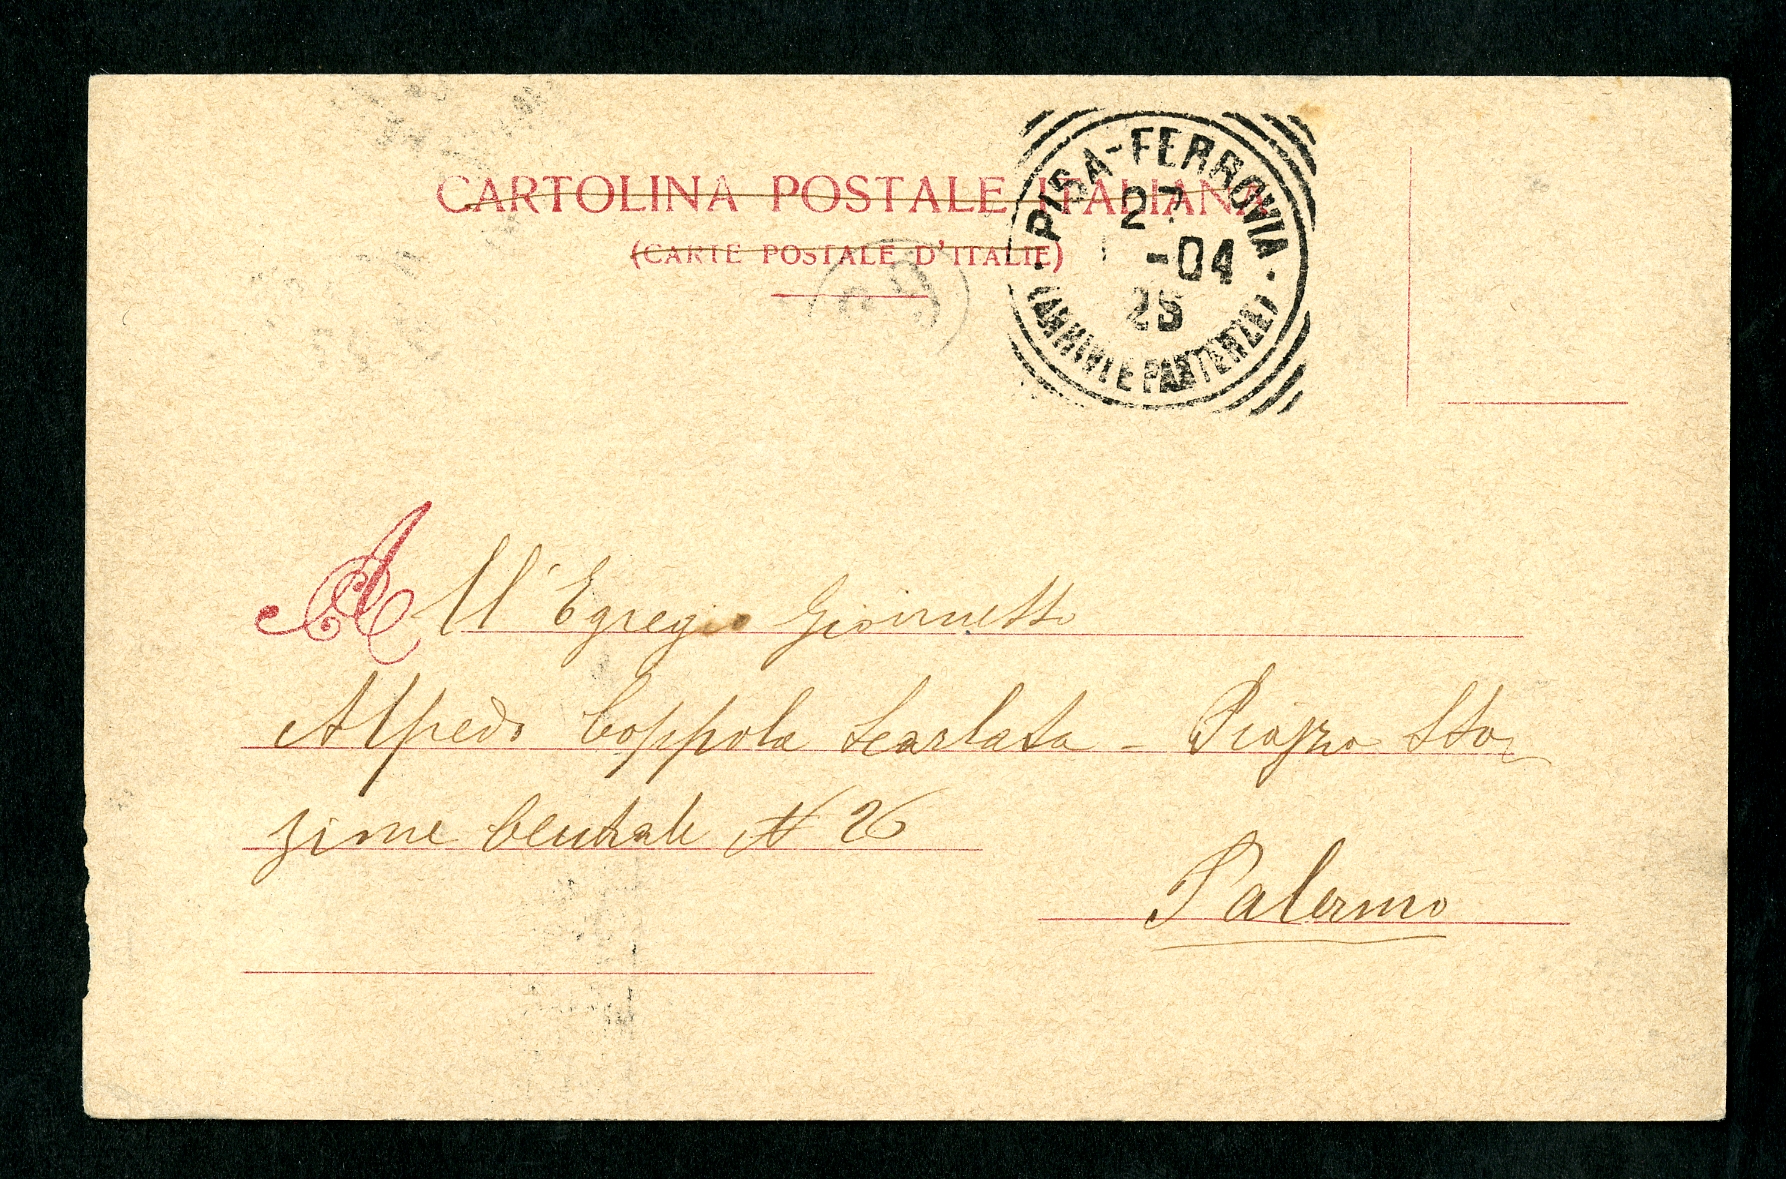 CARTOLINA POSTALE ITALIANA
(CARTE POSTALE D'ITALIE)
PISA-FERROVIA
27
-04
(ARRIVI E PARTENZE)
All' Egregio Giovinetto
Alfredo Coppola Scarlata - Piazza Sta
zione Centrale N 26
Palermo